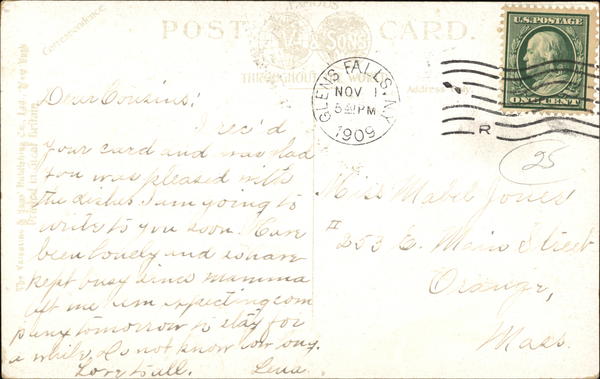 POST CARD.
Correspondence.
FAMOUS
& SONS
THROUGHOUT THE WORLD
Address Only.
The Valentine & Sons Publishing Co., Ltd., New York
Printed in Great Britain.
GLENS FALLS, N.Y.
NOV 1
5 PM
1909
R
U.S. POSTAGE
ONE CENT
25
Dear Cousins:
I rec'd
your card and was glad
you was pleased with
the dishes. I am going to
write to you soon. Have
been lonely and
kept busy since mamma
left me. am expecting com
pany tomorrow to stay for
a while, do not know how long.
Love to all. Lena.
Miss Mabel Jones
# 253 E. Main Street
Orange,
Mass.